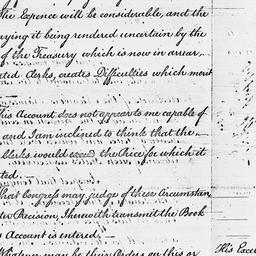 The Expence will be considerable, and the
aying it being rendered uncertain by the
of the Treasury which is now in arrear
ated Clerks, creates Difficulties which most
his Account does not appear to me capable of
and I am inclined to think that the
blanks would exceed the Price for which it
ted.—
that Congress may judge of these Circumstan
Decision, I herewith transmit the Book
Account is entered.
Whatever may be their Orders on this or
His Excel